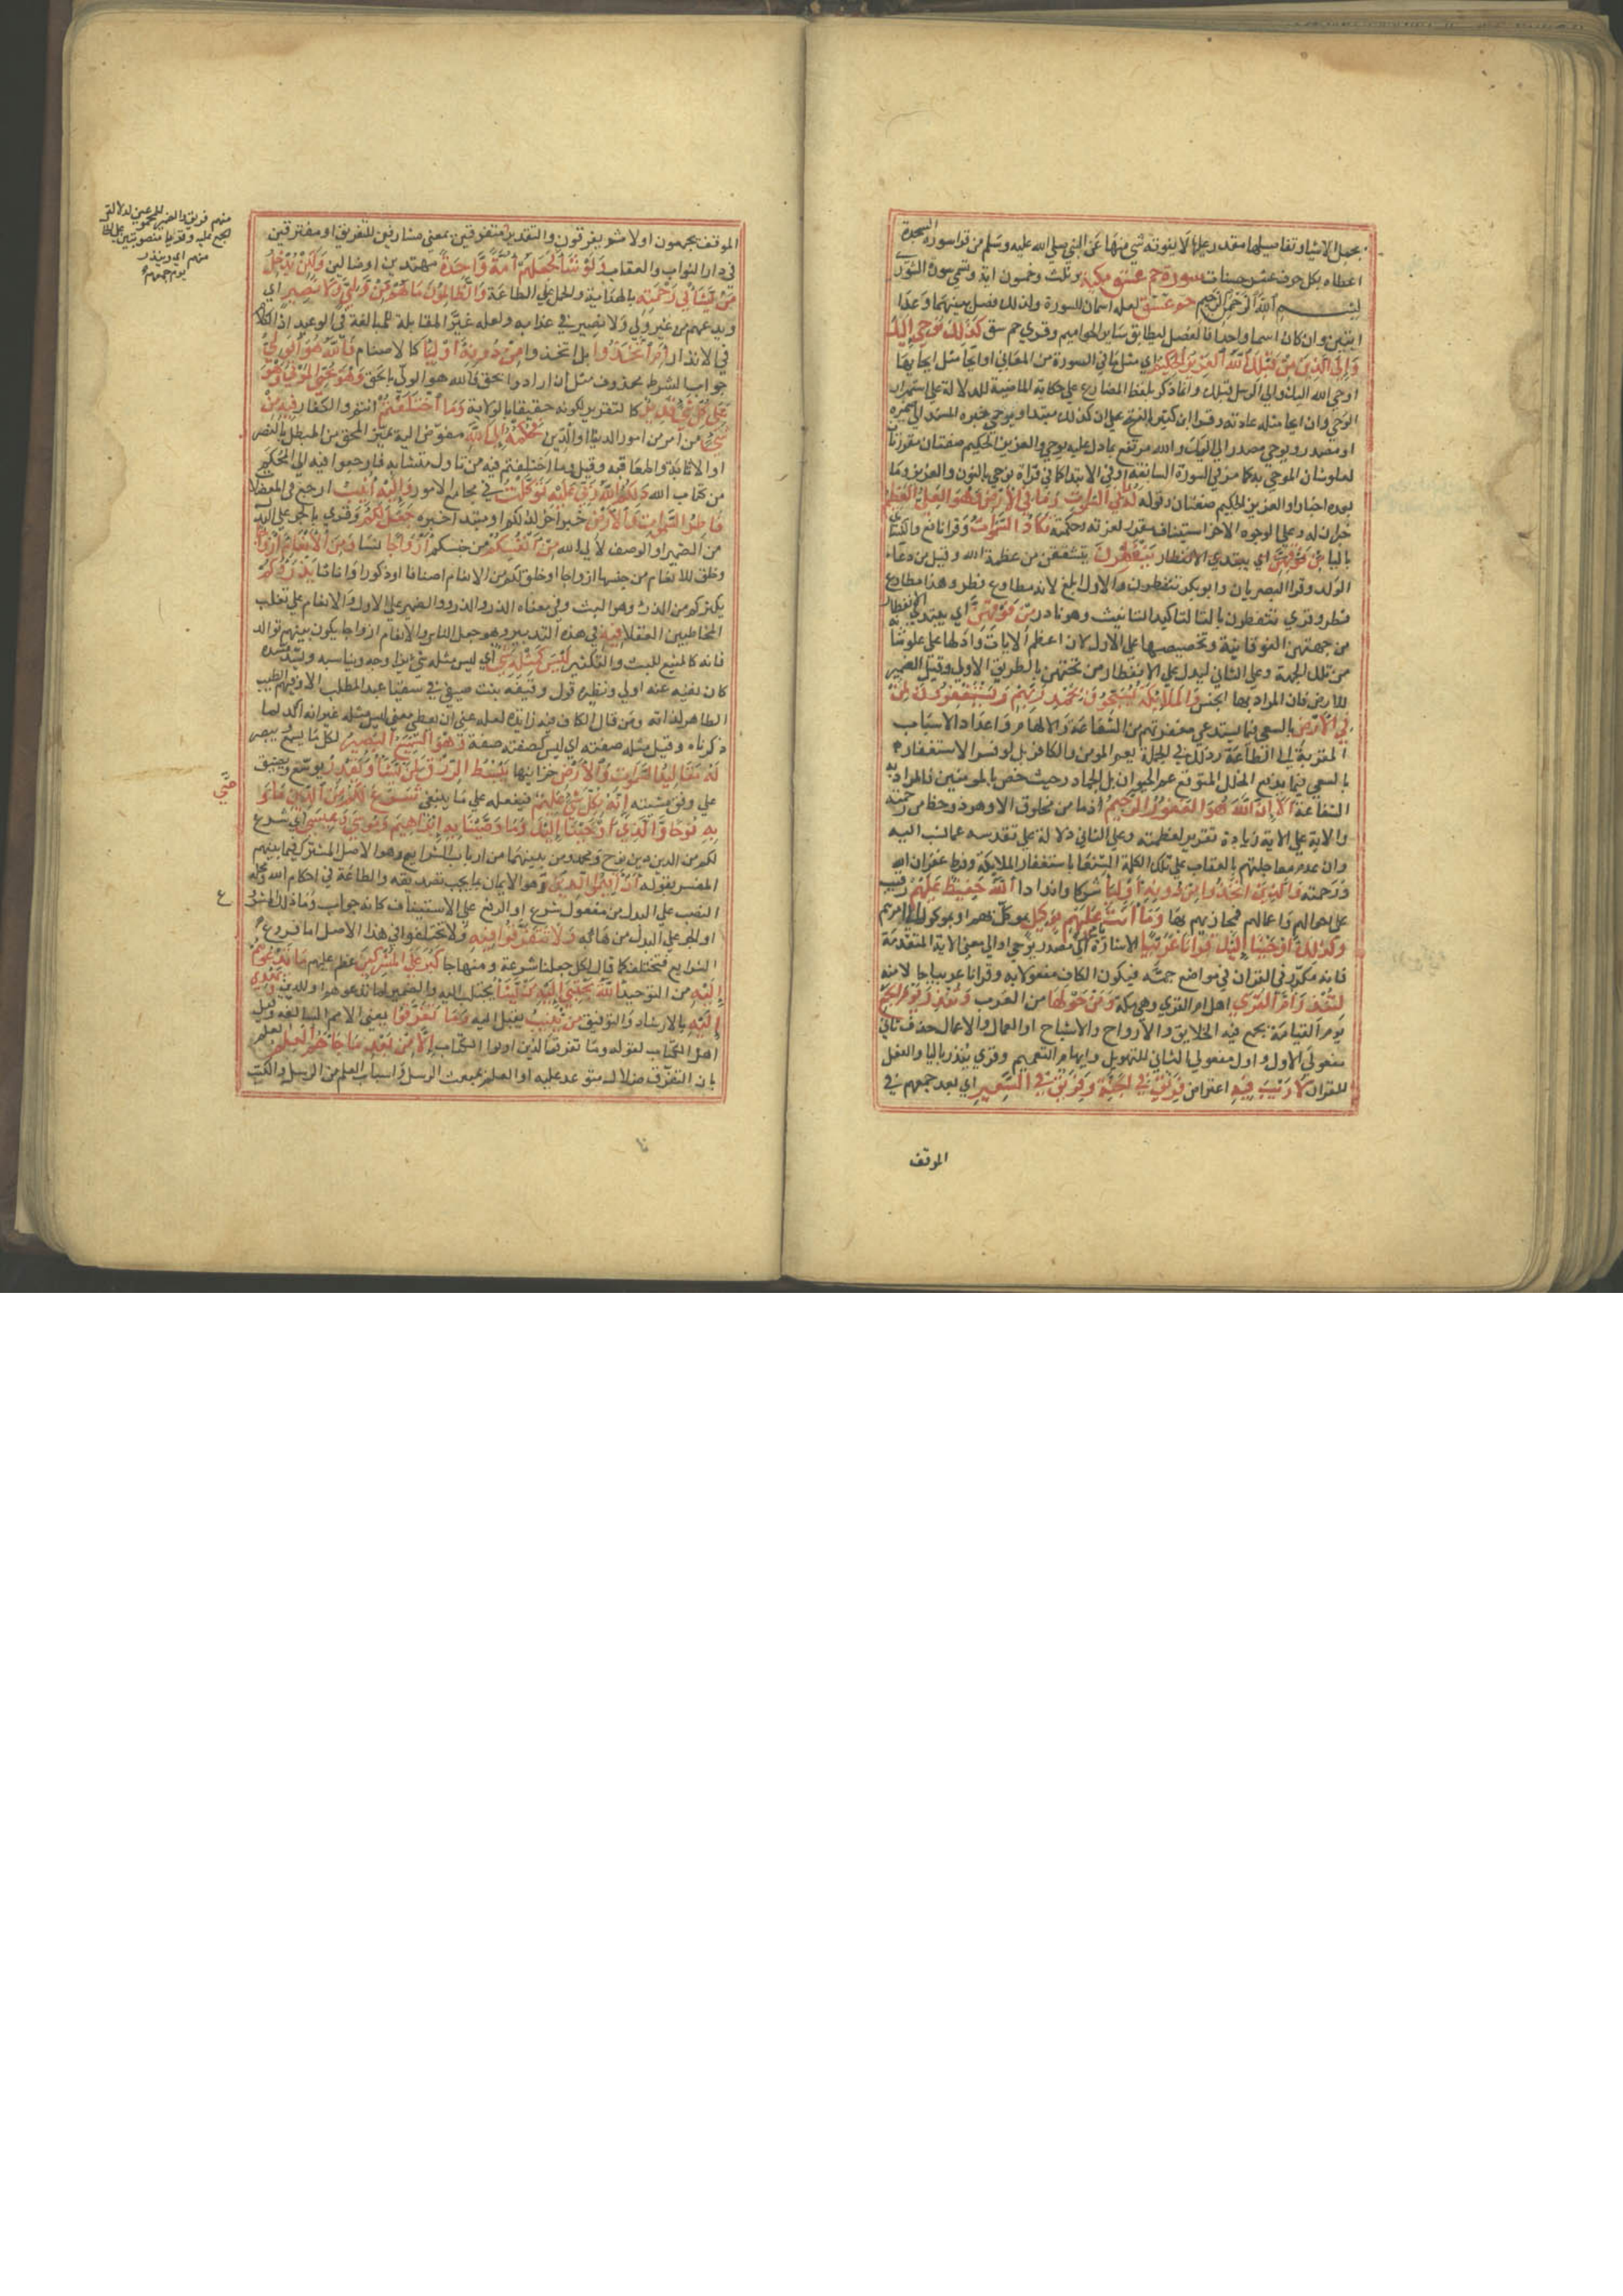 بجمل الاشيا وتفاصيلها مقتدر عليها لا يفوته شي منها عن النبي صلي الله عليه وسلم من قرا سورة السجدة
اعطاه بكل حرف عشر حسنات سورة حم عسق مكية وثلث وخمسون اية وتسمي سورة الشوري
بسم الله الرحمن الرحيم حم عسق لعله اسمان للسورة ولذلك فصل بينهما وعدا
ايتين وان كان اسما واحدا فالفصل ليطابق ساير الحواميم وقري حم سق كذلك يوحي اليك
والي الذين من قبلك الله العزيز الحكيم اي مثل ما في السورة من المعاني او ايحا مثل ايحايها
اوحي الله اليك والي الرسل قبلك وانما ذكر بلفظ المضارع علي حكاية الماضية للدلالة علي استمرار
الوحي وان ايحا مثله عادته وقرا ابن كثير بالفتح علي ان كذلك مبتدا ويوحي خبره المسند الي ضميره
او مصدر ويوحي مسند الي اليك والله مرتفع بما دل عليه يوحي والعزيز الحكيم صفتان مقررتان
لعلو شان الموحي به كما مر في السورة السابقة او في الابتدا كما في قراة نوحي بالنون والعزيز وما
بعده اخبار او العزيز الحكيم صفتان وقوله له ما في السموات وما في الارض وهو العلي العظيم
خبران له وعلي الوجوه الاخر استيناف مقرر لعزته وحكمته تكاد السموات وقرا نافع والكسائي
باليا من فوقهن اي يبتدي الانفطار يتفطرن يتشققن من عظمة الله وقيل من دعاء
الولد وقرا البصريان وابو بكر ينفطرن والاول ابلغ لانه مطاوع فطر وهذا مطاوع
فطر وقري تتفطرن بالتا لتاكيد التانيث وهو نادر من فوقهن اي يبتدي الانفطار
من جهتهن الفوقانية وتخصيصها علي الاول لان اعظم الايات وادلها علي علو شانه
من تلك الجهة وعلي الثاني ليدل علي الانفطار من تحتهن بالطريق الاولي وقيل الضمير
للارض فان المراد بها الجنس والملائكة يسبحون بحمد ربهم ويستغفرون لمن
في الارض بالسعي فيما يستدعي مغفرتهم من الشفاعة والالهام واعداد الاسباب
المقربة الي الطاعة وذلك في الجملة يعم المومن والكافر بل لو فسر الاستغفار
بالسعي فيما يدفع الخلل المتوقع عم الحيوان بل الجماد وحيث خص بالمومنين فالمراد به
الشفاعة الا ان الله هو الغفور الرحيم اذ ما من مخلوق الا وهو ذو حظ من رحمته
والاية علي الاية زيادة تقرير لعظمته وعلي الثاني دلالة علي تقدسه عما نسب اليه
وان عدم معاجلتهم بالعقاب علي تلك الكلمة الشنعا باستغفار الملايكة وفرط غفران الله
ورحمته والذين اتخذوا من دونه اوليا شركا واندادا الله حفيظ عليهم رقيب
علي احوالهم واعمالهم فيجازيهم بها وما انت عليهم بوكيل بموكل بهم او بموكول اليك امرهم
وكذلك اوحينا اليك قرانا عربيا الاشارة الي مصدر يوحي او الي معني الاية المتقدمة
فانه مكرر في القران في مواضع جمة فيكون الكاف مفعولا به وقرانا عربيا حالا منه
لتنذر ام القري اهل ام القري وهي مكة ومن حولها من العرب وتنذر يوم الجمع
يوم القيامة يجمع فيه الخلايق والارواح والاشباح او العمال والاعمال حذف ثاني
مفعولي الاول واول مفعولي الثاني للتهويل وايهام التعميم وقري لينذر باليا والفعل
للقران لا ريب فيه اعتراض فريق في الجنة وفريق في السعير اي بعد جمعهم في
الموقف
الموقف يجمعون اولا ثم يفرقون والتقدير متفرقين بمعني مشارفين للتفريق او مفترقين
في دار الثواب والعقاب ولو شا الله لجعلهم امة واحدة مهتدين او ضالين ولكن يدخل
من يشا في رحمته بالهداية والحمل علي الطاعة والظالمون ما لهم من ولي ولا نصير اي
ويدعهم من غير ولي ولا نصير في عذابه ولعله غير المقابلة للمبالغة في الوعيد اذ الكلام
في الانذار ام اتخذوا بل اتخذوا من دونه اوليا كالاصنام فالله هو الولي
جواب لشرط محذوف مثل ان ارادوا بحق فالله هو الولي بالحق وهو يحيي الموتي وهو
علي كل شي قدير كالتقرير لكونه حقيقا بالولاية وما اختلفتم انتم والكفار فيه من
شي من امر من امور الدنيا او الدين فحكمه الي الله مفوض اليه يميز المحق من المبطل بالنصر
او الاثابة والمعاقبة وقيل وما اختلفتم فيه من تاويل متشابه فارجعوا فيه الي المحكم
من كتاب الله ذلكم الله ربي عليه توكلت في مجامع الامور واليه انيب ارجع في المعضلات
فاطر السموات والارض خبر اخر لذلكم او مبتدا خبره جعل لكم وقري بالجر علي البدل
من الضمير او الوصف لالي الله من انفسكم من جنسكم ازواجا نسا ومن الانعام ازواجا
وخلق للانعام من جنسها ازواجا او خلق لكم من الانعام اصنافا او ذكورا واناثا يذرؤكم
يكثركم من الذرء وهو البث وفي معناه الذر والذرو والضمير علي الاول والانعام علي تغليب
المخاطبين العقلا فيه في هذا التدبير وهو جعل الناس والانعام ازواجا يكون بينهم توالد
فانه كالمنبع للبث والتكثير ليس كمثله شي اي ليس مثله شي يزاوجه ويناسبه
كان نفيه عنه اولي ونظيره قول رقيقة بنت صيفي في سقيا عبد المطلب الا وفيهم الطيب
الطاهر لذاته ومن قال الكاف فيه زايدة لعله عني انه يعطي معني ليس مثله غير انه اكد لما
ذكرناه وقيل مثله صفته اي ليس كصفته صفة وهو السميع البصير لكل ما يسمع ويبصر
له مقاليد السموات والارض خزاينها يبسط الرزق لمن يشا ويقدر يوسع ويضيق
علي وفق مشيته انه بكل شي عليم فيفعله علي ما ينبغي شرع لكم من الدين ما وصي
به نوحا والذي اوحينا اليك وما وصينا به ابراهيم وموسي وعيسي اي شرع
لكم من الدين دين نوح ومحمد ومن بينهما من ارباب الشرايع وهو الاصل المشترك فيما بينهم
المفسر بقوله ان اقيموا الدين وهو الايمان بما يجب تصديقه والطاعة في احكام الله ومحله
النصب علي البدل من مفعول شرع او الرفع علي الاستيناف كانه جواب وما ذلك المشروع
او الجر علي البدل من هاء به ولا تتفرقوا فيه ولا تختلفوا في هذا الاصل اما فروع
الشرايع فتختلف كما قال لكل جعلنا شرعة ومنهاجا كبر علي المشركين عظم عليهم ما تدعوهم
اليه من التوحيد الله يجتبي اليه من يشا يجتلب اليه والضمير لما تدعوهم او للدين ويهدي
اليه بالارشاد والتوفيق من ينيب يقبل اليه وما تفرقوا يعني الامم السالفة وقيل
اهل الكتاب لقوله وما تفرق الذين اوتوا الكتاب الا من بعد ما جاءهم العلم العلم
بان التفرق ضلال متوعد عليه او العلم بمبعث الرسل واسباب العلم من الرسل والكتب
منهم فريق والضمير للمجموعين لدلالة
الجمع عليه وقريا منصوبتين علي الحال
منهم اي وينذر
يوم جمعهم
صي
ع